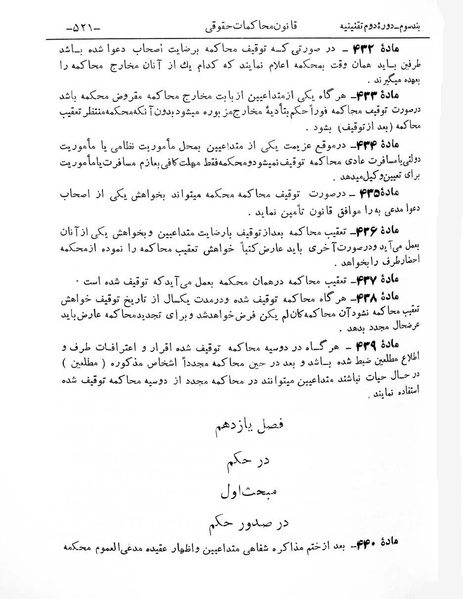 بند سوم ـ دورهٔ دوم تقنینیه
قانون محاکمات حقوقی
ـ ۵۲۱ ـ
مادهٔ ۴۳۲ ـ در صورتی که توقیف محاکمه برضایت اصحاب دعوا شده باشد
طرفین باید همان وقت بمحکمه اعلام نمایند که کدام یک از آنان مخارج محاکمه را
بعهده میگیرند .
مادهٔ ۴۳۳ ـ هرگاه یکی از متداعیین از بابت مخارج محاکمه مقروض محکمه باشد
درصورت توقیف محاکمه فوراً حکم بتأدیهٔ مخارج مزبوره میشود بدون آنکه محکمه منتظر تعقیب
محاکمه (بعد از توقیف) بشود .
مادهٔ ۴۳۴ ـ درموقع عزیمت یکی از متداعیین بمحل مأموریت نظامی یا مأموریت
دولتی یا مسافرت عادی محاکمه توقیف نمیشود و محکمه فقط مهلت کافی بعازم مسافرت یا مأموریت
برای تعیین وکیل میدهد .
مادهٔ ۴۳۵ ـ درصورت توقیف محاکمه محکمه میتواند بخواهش یکی از اصحاب
دعوا مدعی به را موافق قانون تأمین نماید .
مادهٔ ۴۳۶ ـ تعقیب محاکمه بعد از توقیف با رضایت متداعیین و بخواهش یکی از آنان
بعمل می‌آید و درصورت آخری باید عارض کتباً خواهش تعقیب محاکمه را نموده از محکمه
احضار طرف را بخواهد .
مادهٔ ۴۳۷ ـ تعقیب محاکمه در همان محکمه بعمل می‌آید که توقیف شده است .
مادهٔ ۴۳۸ ـ هر گاه محاکمه توقیف شده و درمدت یکسال از تاریخ توقیف خواهش
تعقیب محاکمه نشود آن محاکمه کان لم یکن فرض خواهد شد و برای تجدید محاکمه عارض باید
عرضحال مجدد بدهد .
مادهٔ ۴۳۹ ـ هرگاه در دوسیه محاکمه توقیف شده اقرار و اعترافات طرف و
اطلاع مطلعین ضبط شده باشد و بعد در حین محاکمه مجدداً اشخاص مذکوره ( مطلعین )
در حال حیات نباشند متداعیین میتوانند در محاکمه مجدد از دوسیه محاکمه توقیف شده
استفاده نمایند .
فصل یازدهم
در حکم
مبحث اول
در صدور حکم
مادهٔ ۴۴۰ ـ بعد از ختم مذاکره شفاهی متداعیین و اظهار عقیده مدعی العموم محکمه